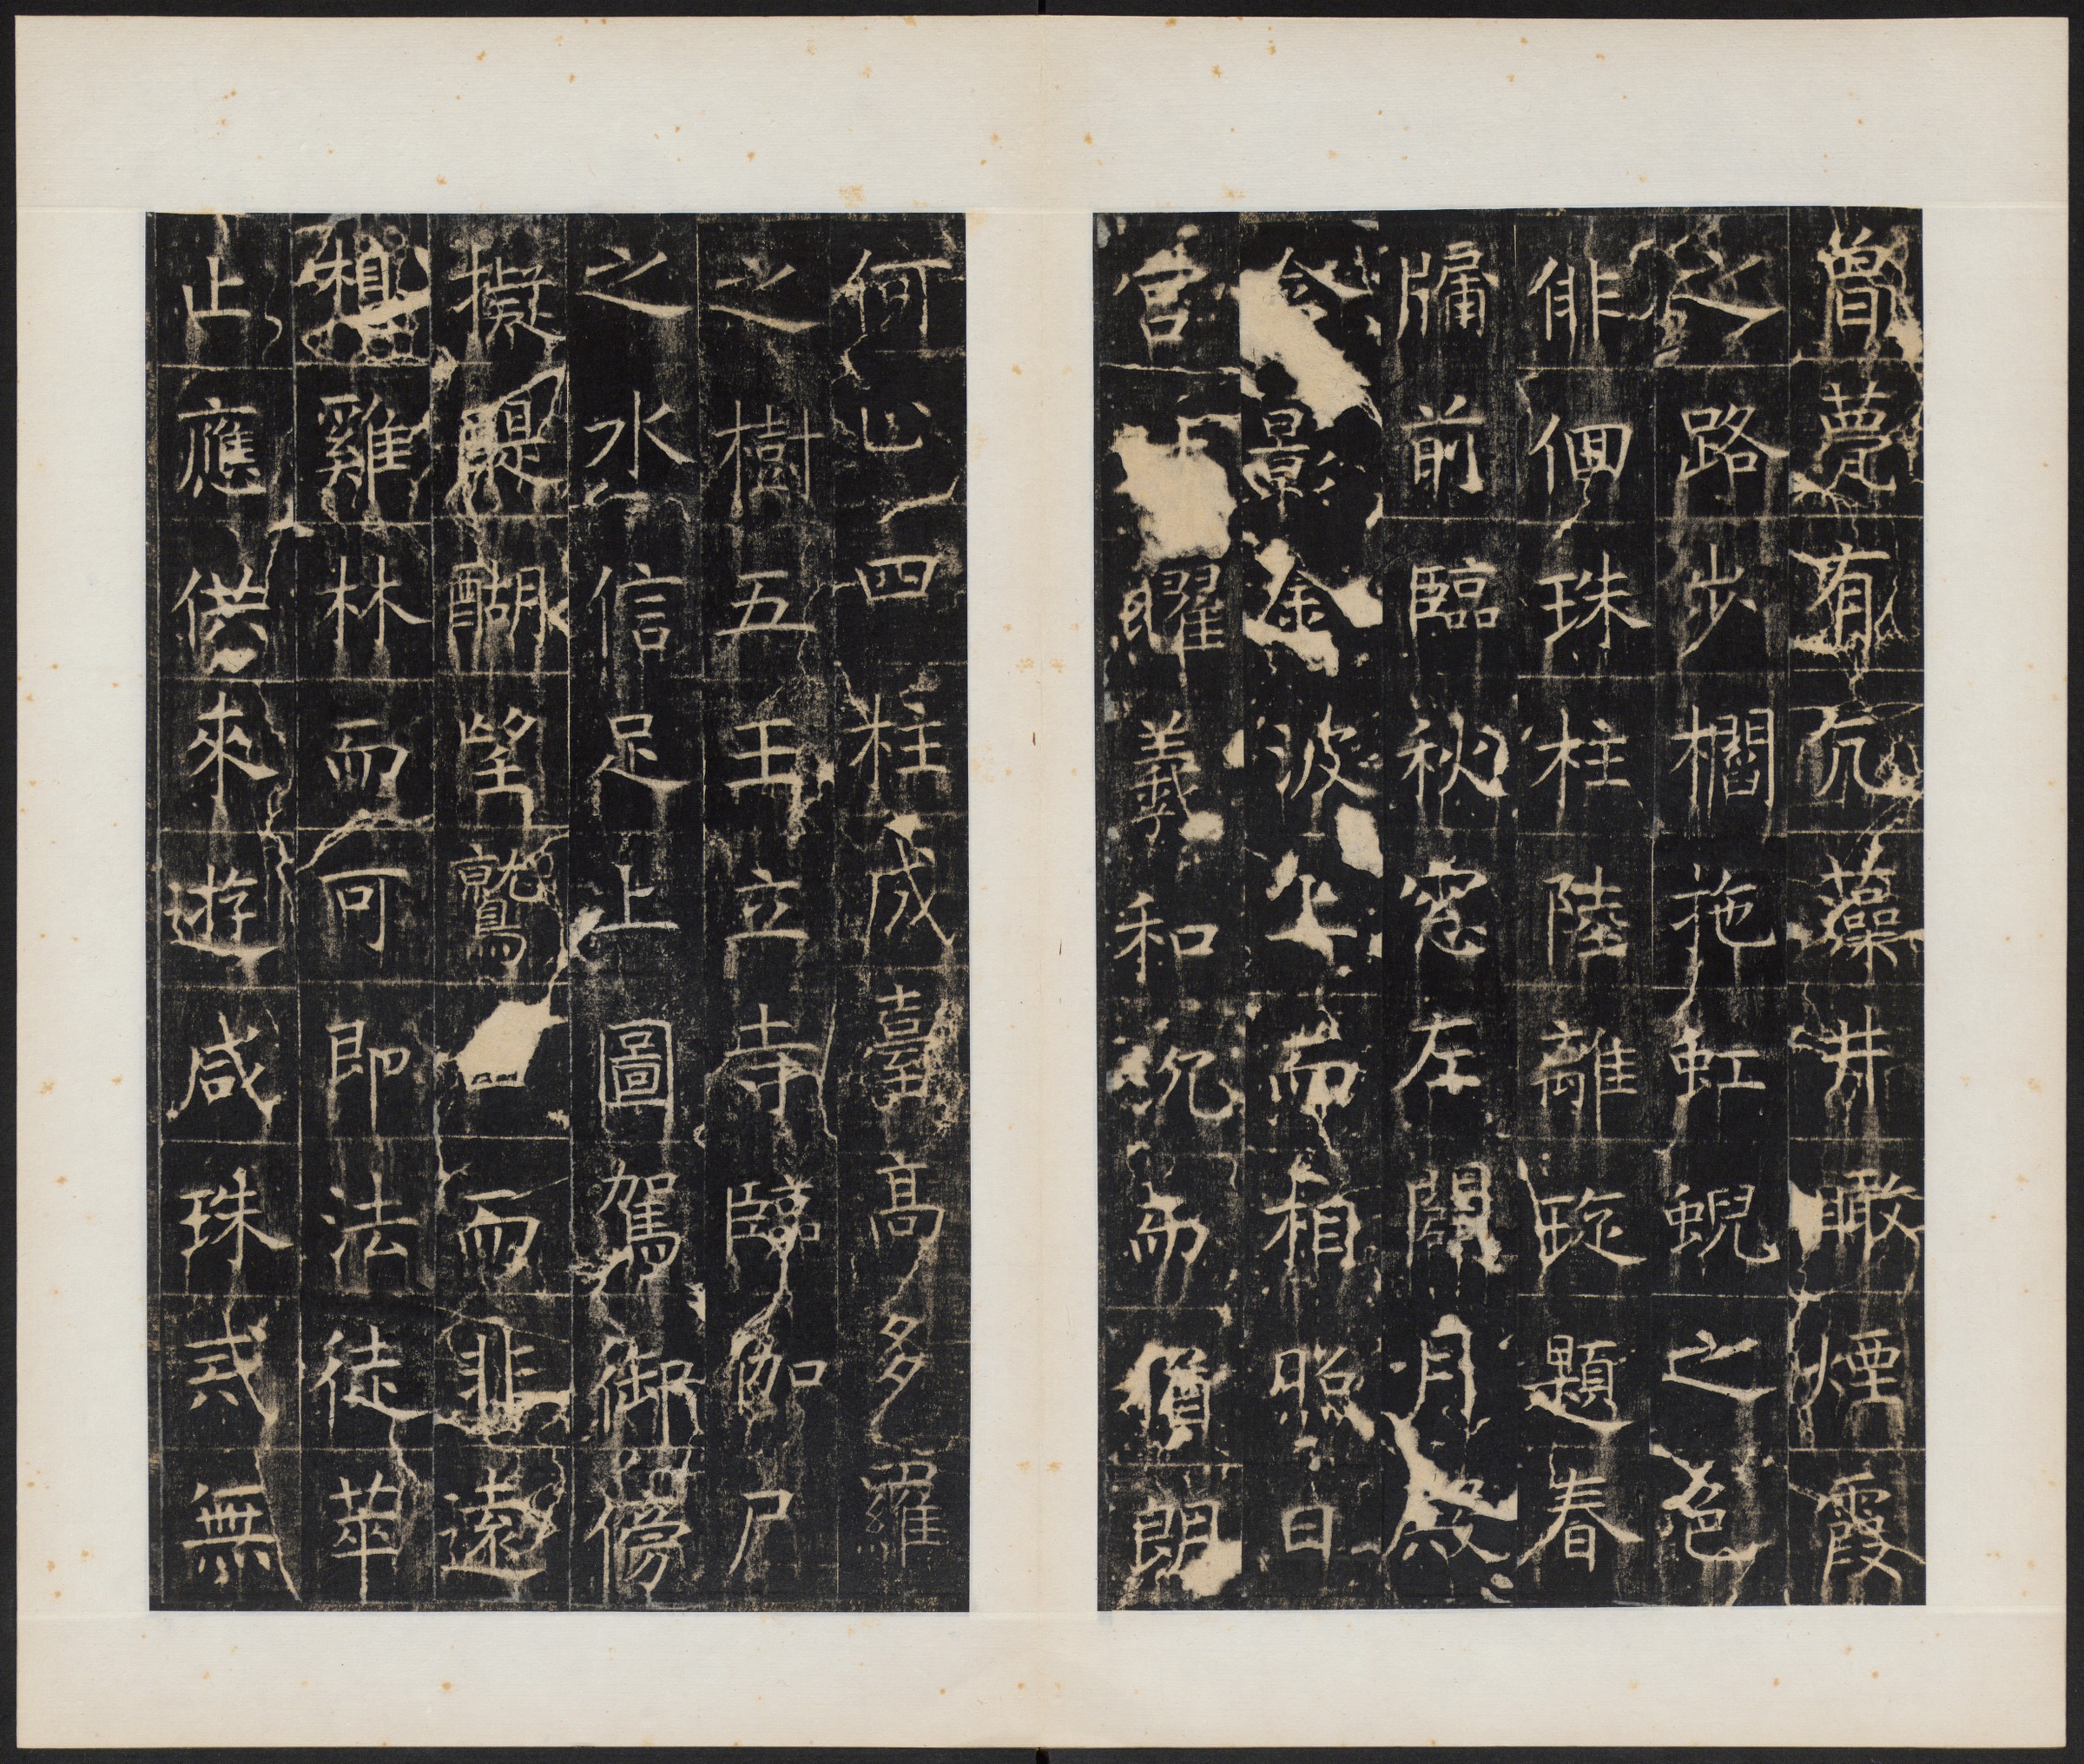 曾甍有亢藻井瞰煙霞
之路步櫩拖虹蜺之色
俳佪珠柱陸離琁題春
牖前臨秋窓左闢月殿
含景金波上而相照日
宮下曜羲和沉而猶朗
何止四柱成臺高多羅
之樹五王立寺臨伽尸
之水信足上圖駕御傍
擬醍醐望鷲山而非遠
想雞林而可即法徒萃
止應供來遊咸珠戒無